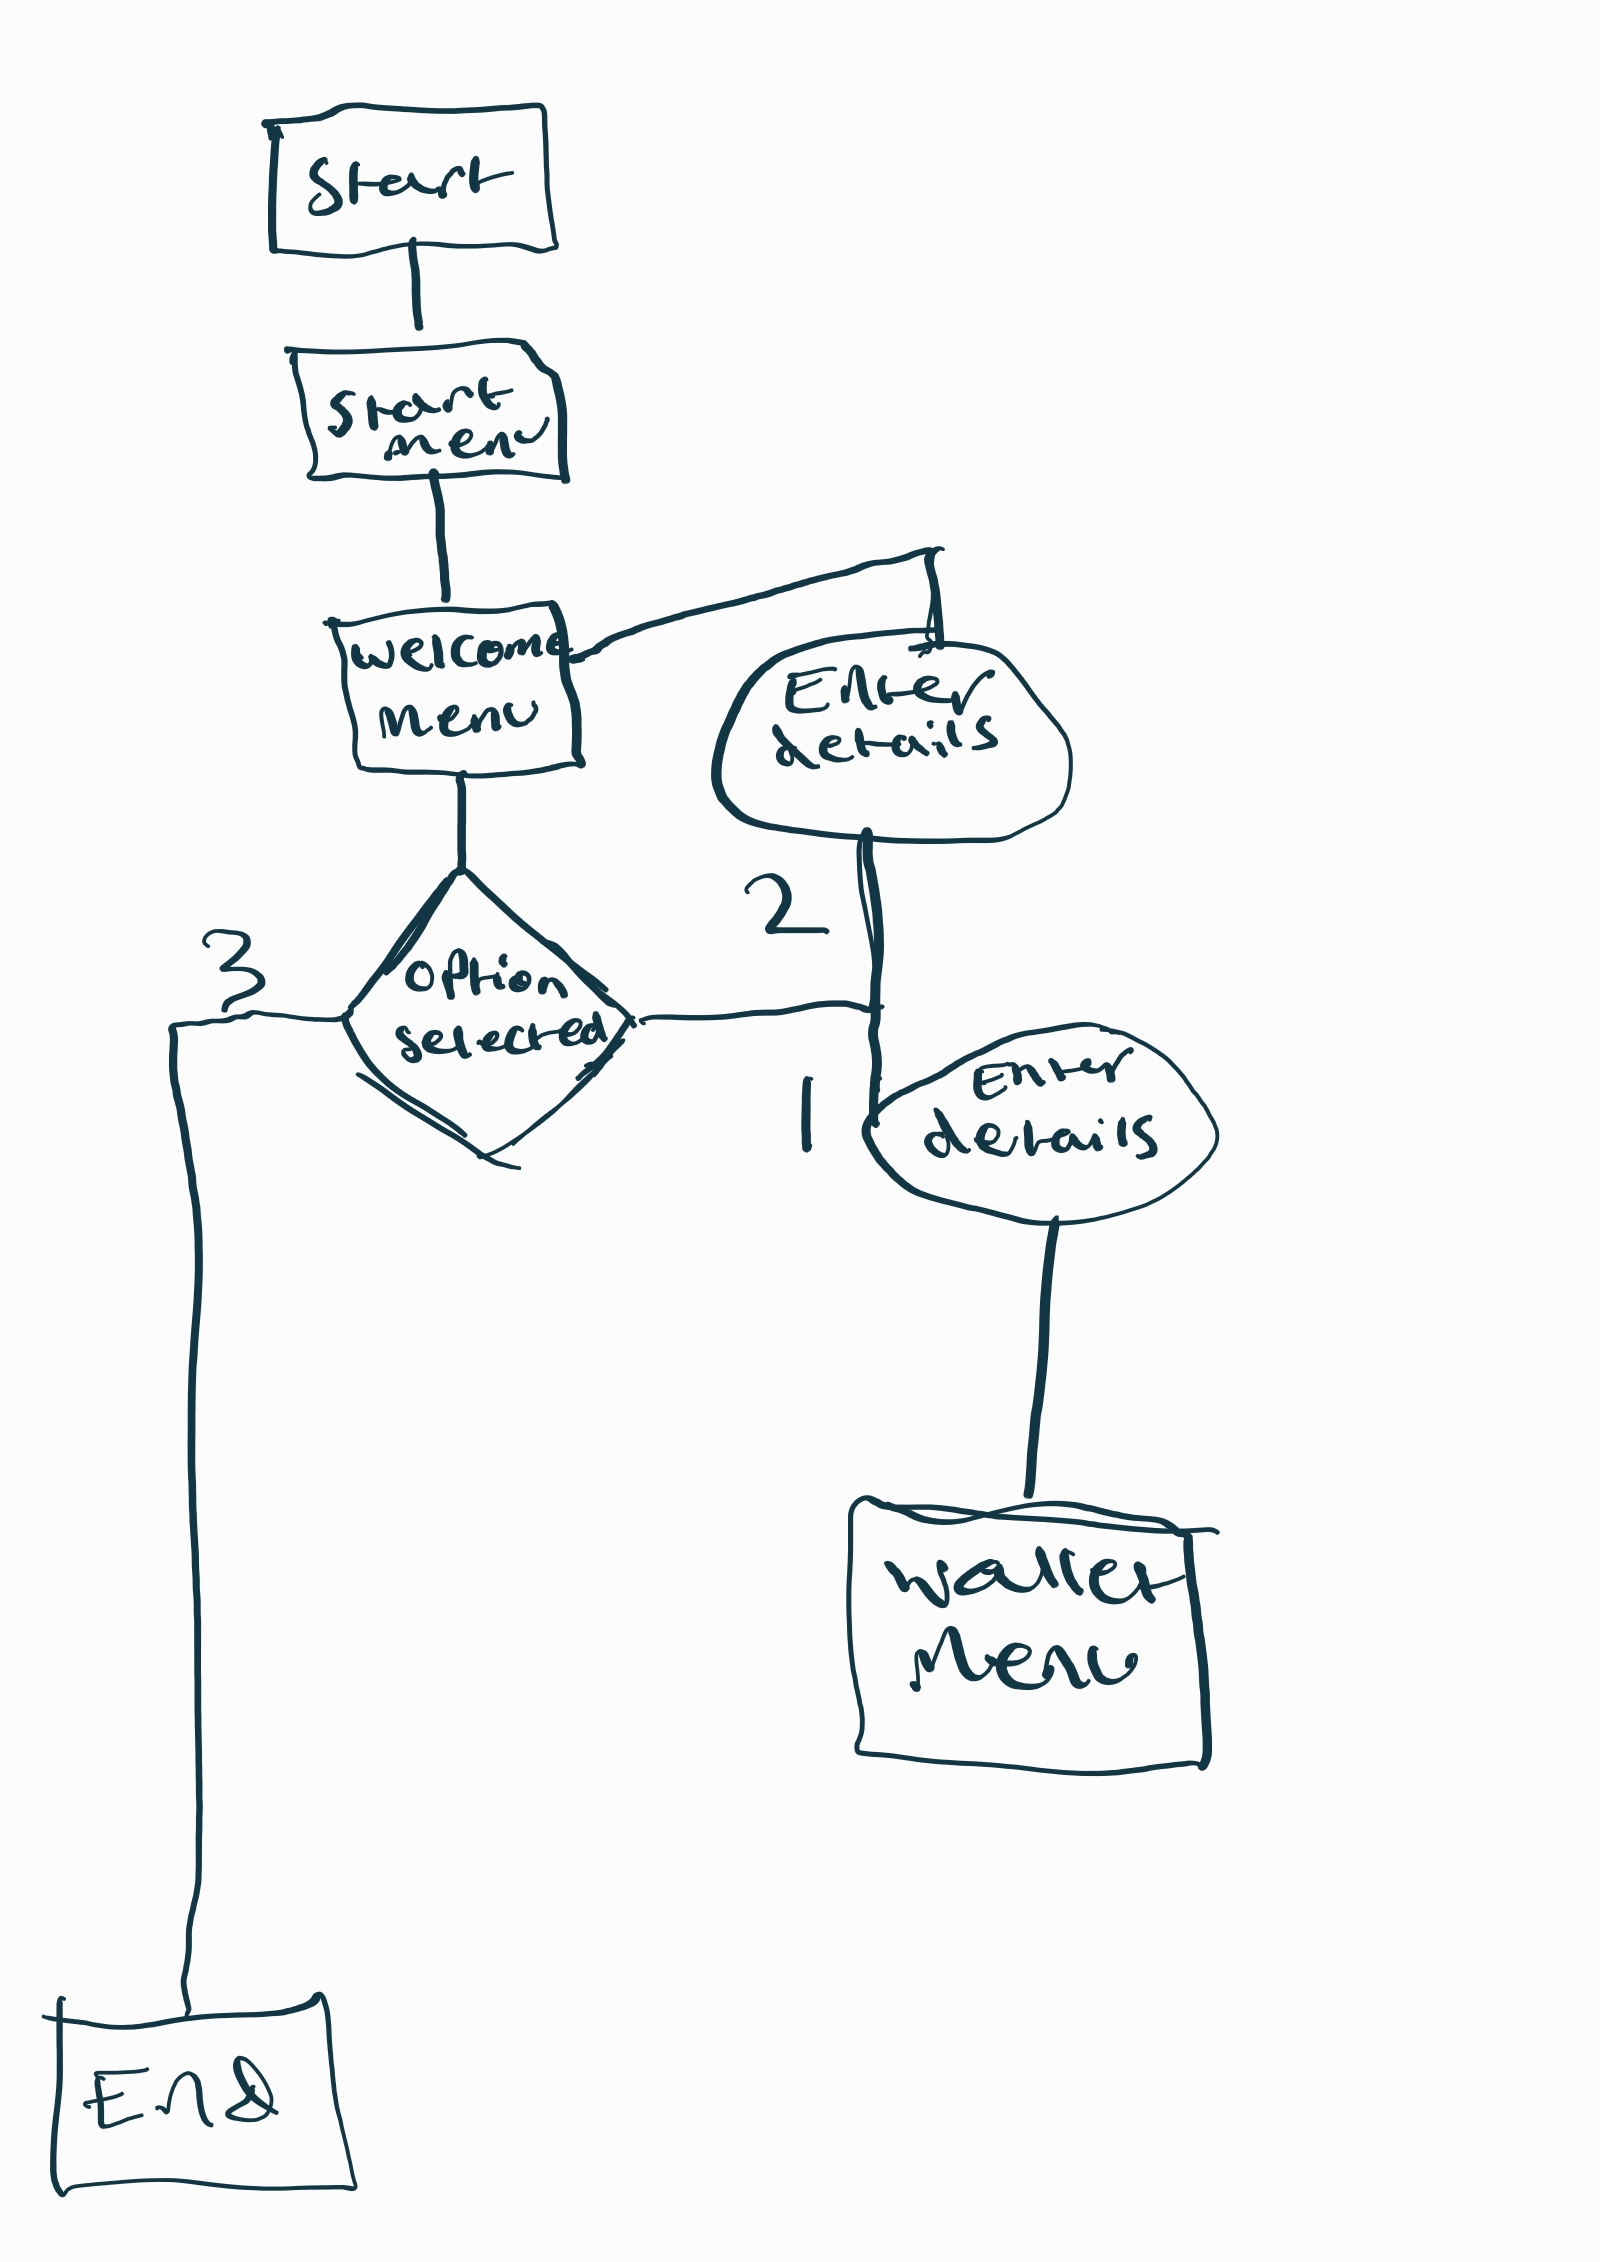 Start
Start
menu
welcome
menu
Enter
details
2
3
Option
selected
1
Enter
details
Wallet
Menu
End